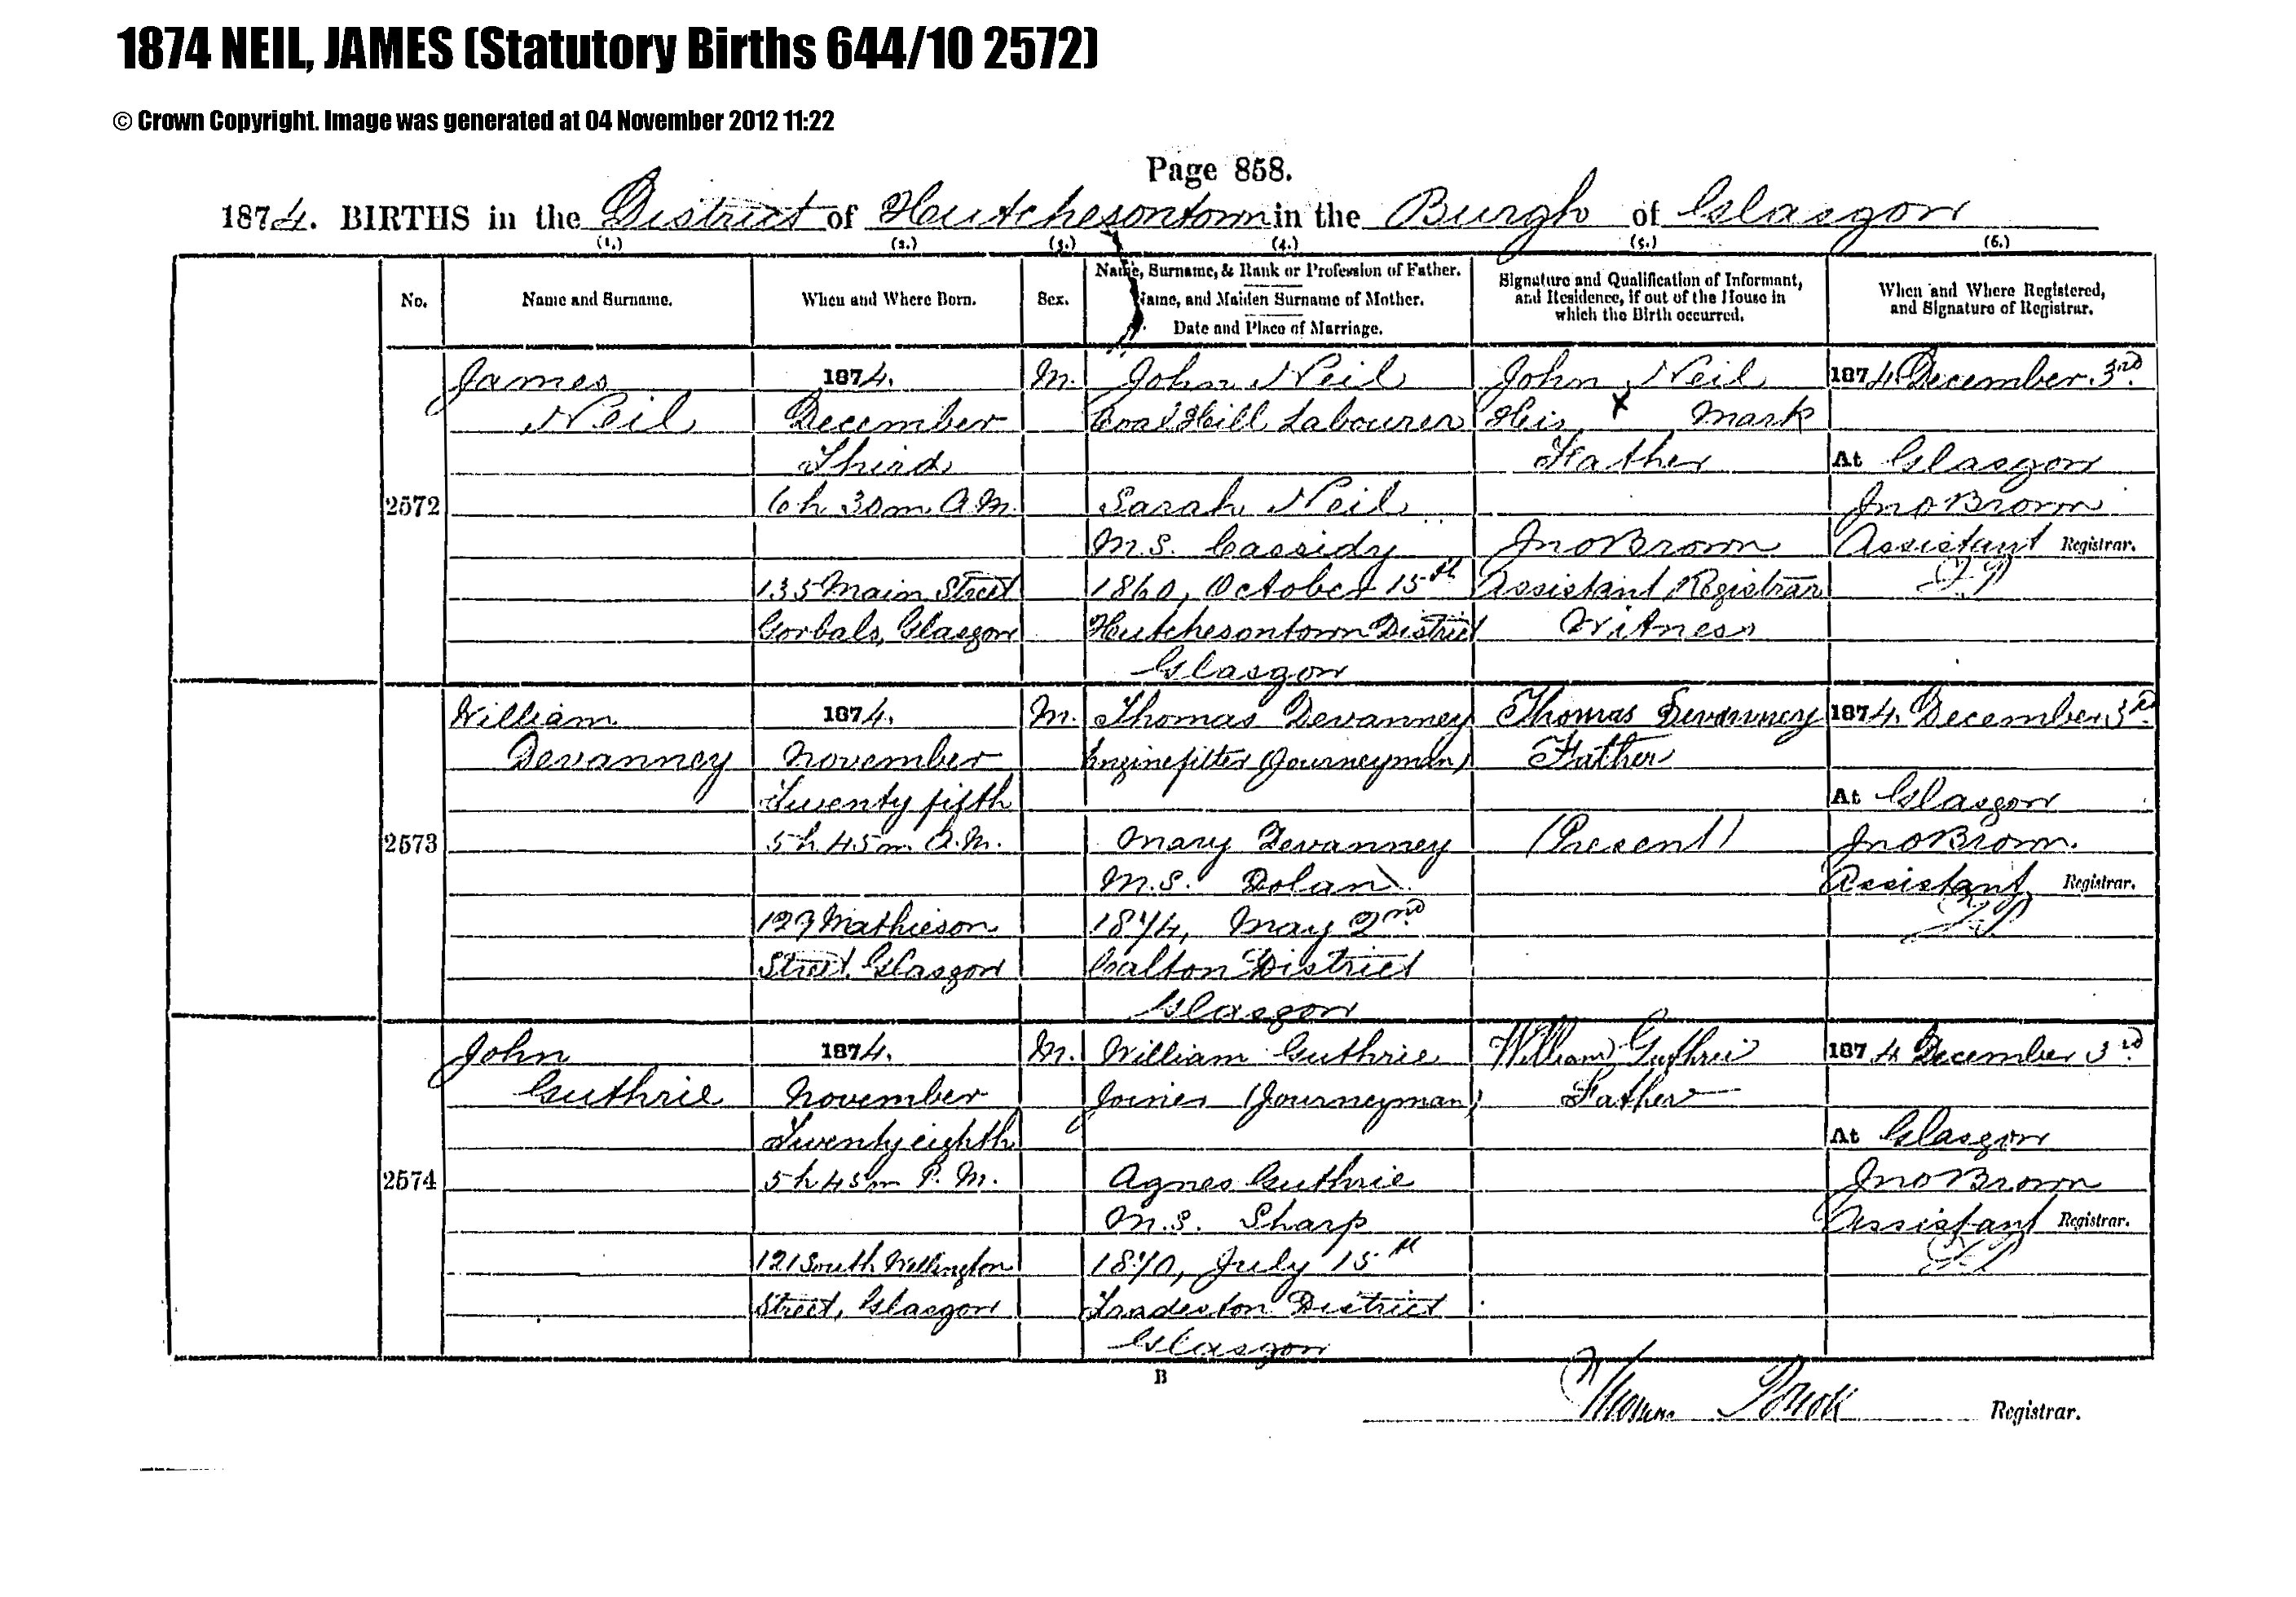 1874 NEIL, JAMES (Statutory Births 644/10 2572)
© Crown Copyright. Image was generated at 04 November 2012 11:22
Page 858.
1874. BIRTHS in the District of Hutchesontown in the Burgh of Glasgow
(1.) (2.) (3.) (4.) (5.) (6.)
No.
Name and Surname.
When and Where Born.
Sex.
Name, Surname, & Rank or Profession of Father.
Name, and Maiden Surname of Mother.
Date and Place of Marriage.
Signature and Qualification of Informant,
and Residence, if out of the House in
which the Birth occurred.
When and Where Registered,
and Signature of Registrar.
2572
James
Neil
1874.
December
Third
6h 30m A.M.
135 Main Street
Gorbals, Glasgow
M.
John Neil
Coal Hill Labourer
Sarah Neil
M.S. Cassidy
1860, October 15th
Hutchesontown District
Glasgow
John Neil
His x Mark
Father
Jno Brown
Assistant Registrar
Witness
1874 December 3rd
At Glasgow
Jno Brown
Assistant Registrar.
2573
William
Devanney
1874.
November
Twenty fifth
5h 45m A.M.
127 Mathieson
Street, Glasgow
M.
Thomas Devanney
Enginefitter (Journeyman)
Mary Devanney
M.S. Dolan
1874, May 2nd
Calton District
Glasgow
Thomas Devanney
Father
(Present)
1874. December 3rd
At Glasgow
Jno Brown.
Assistant Registrar.
2574
John
Guthrie
1874.
November
Twenty eighth
5h 45m P.M.
121 South Wellington
Street, Glasgow
M.
William Guthrie
Joiner (Journeyman)
Agnes Guthrie
M.S. Sharp
1870, July 15th
Tradeston District
Glasgow
William Guthrie
Father
1874 December 3rd
At Glasgow
Jno Brown
Assistant Registrar.
B
Registrar.